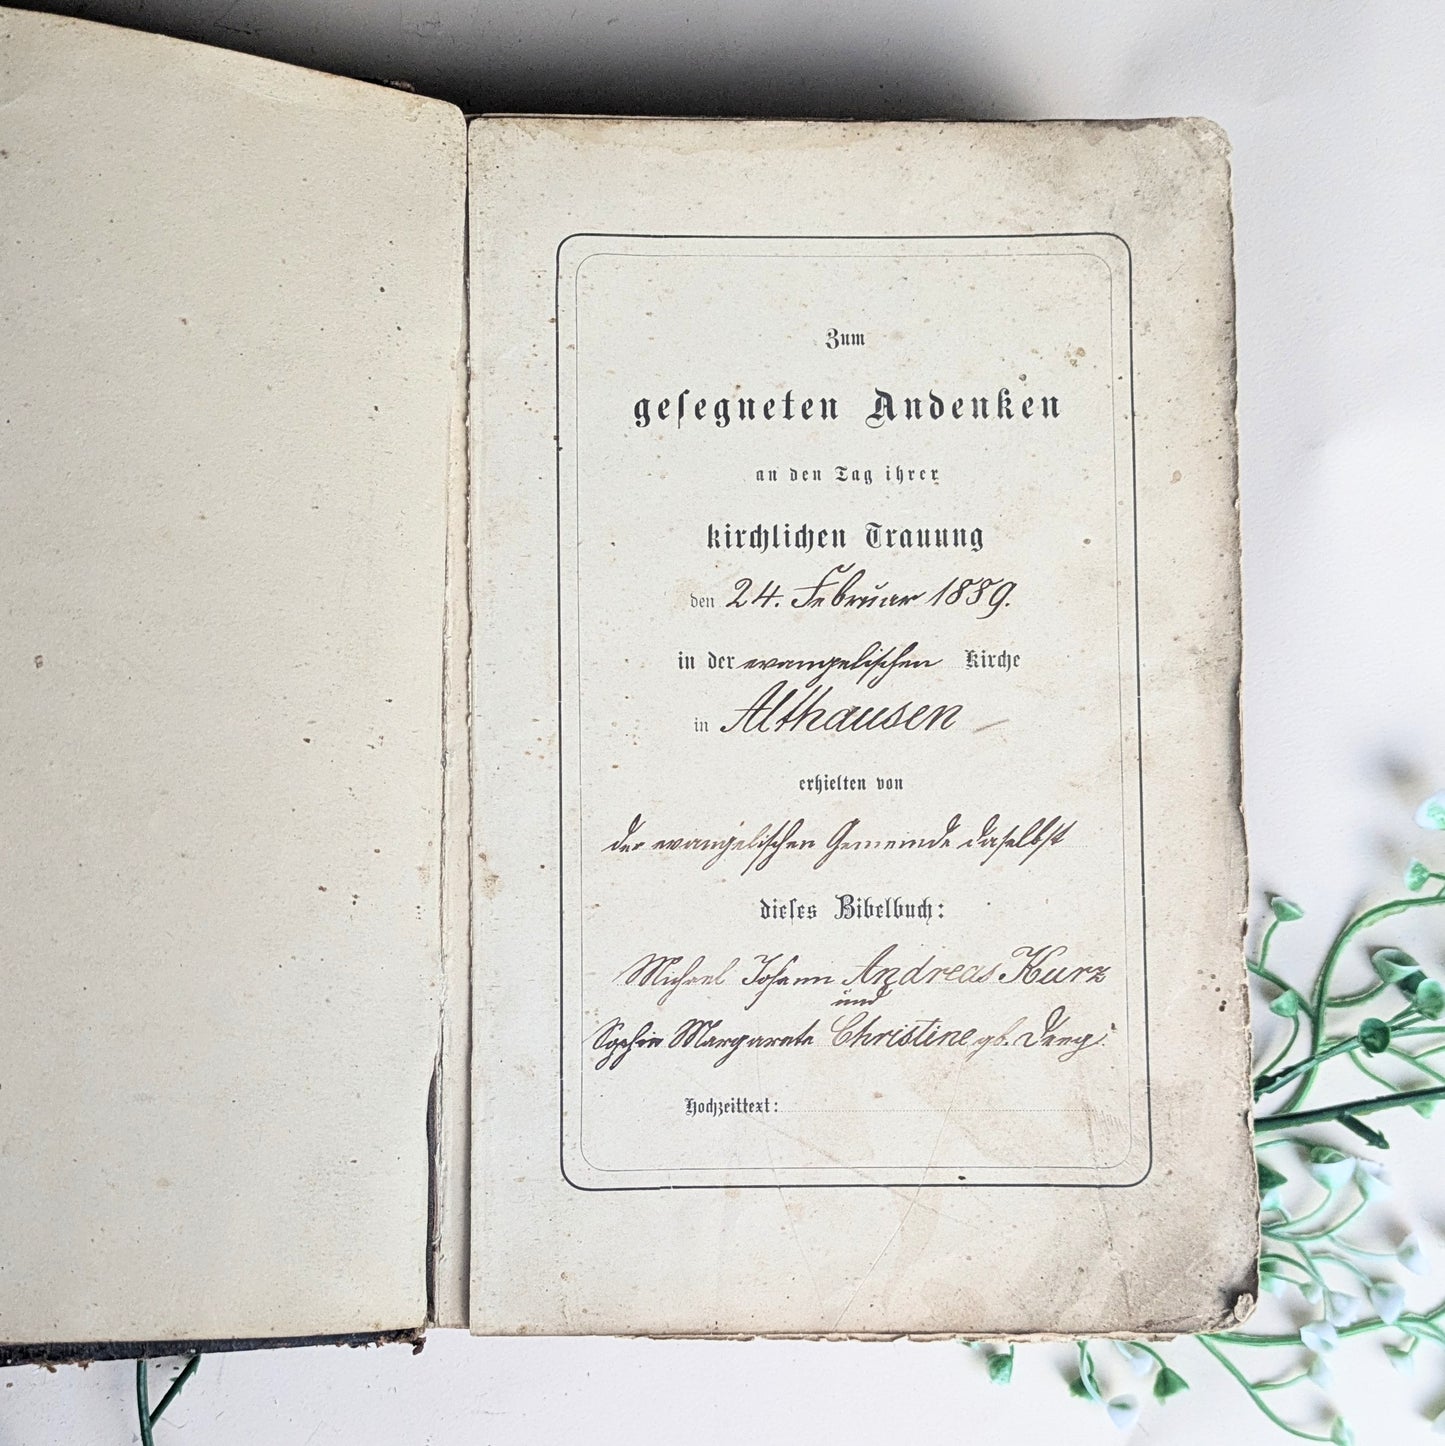 Zum
gesegneten Andenken
an den Tag ihrer
kirchlichen Trauung
den 24. Februar 1889.
in der evangelischen Kirche
in Althausen
erhielten von
der evangelischen Gemeinde daselbst
dieses Bibelbuch:
Michael Johann Andreas Kurz
und
Sophie Margareta Christine gb.
Hochzeittext: